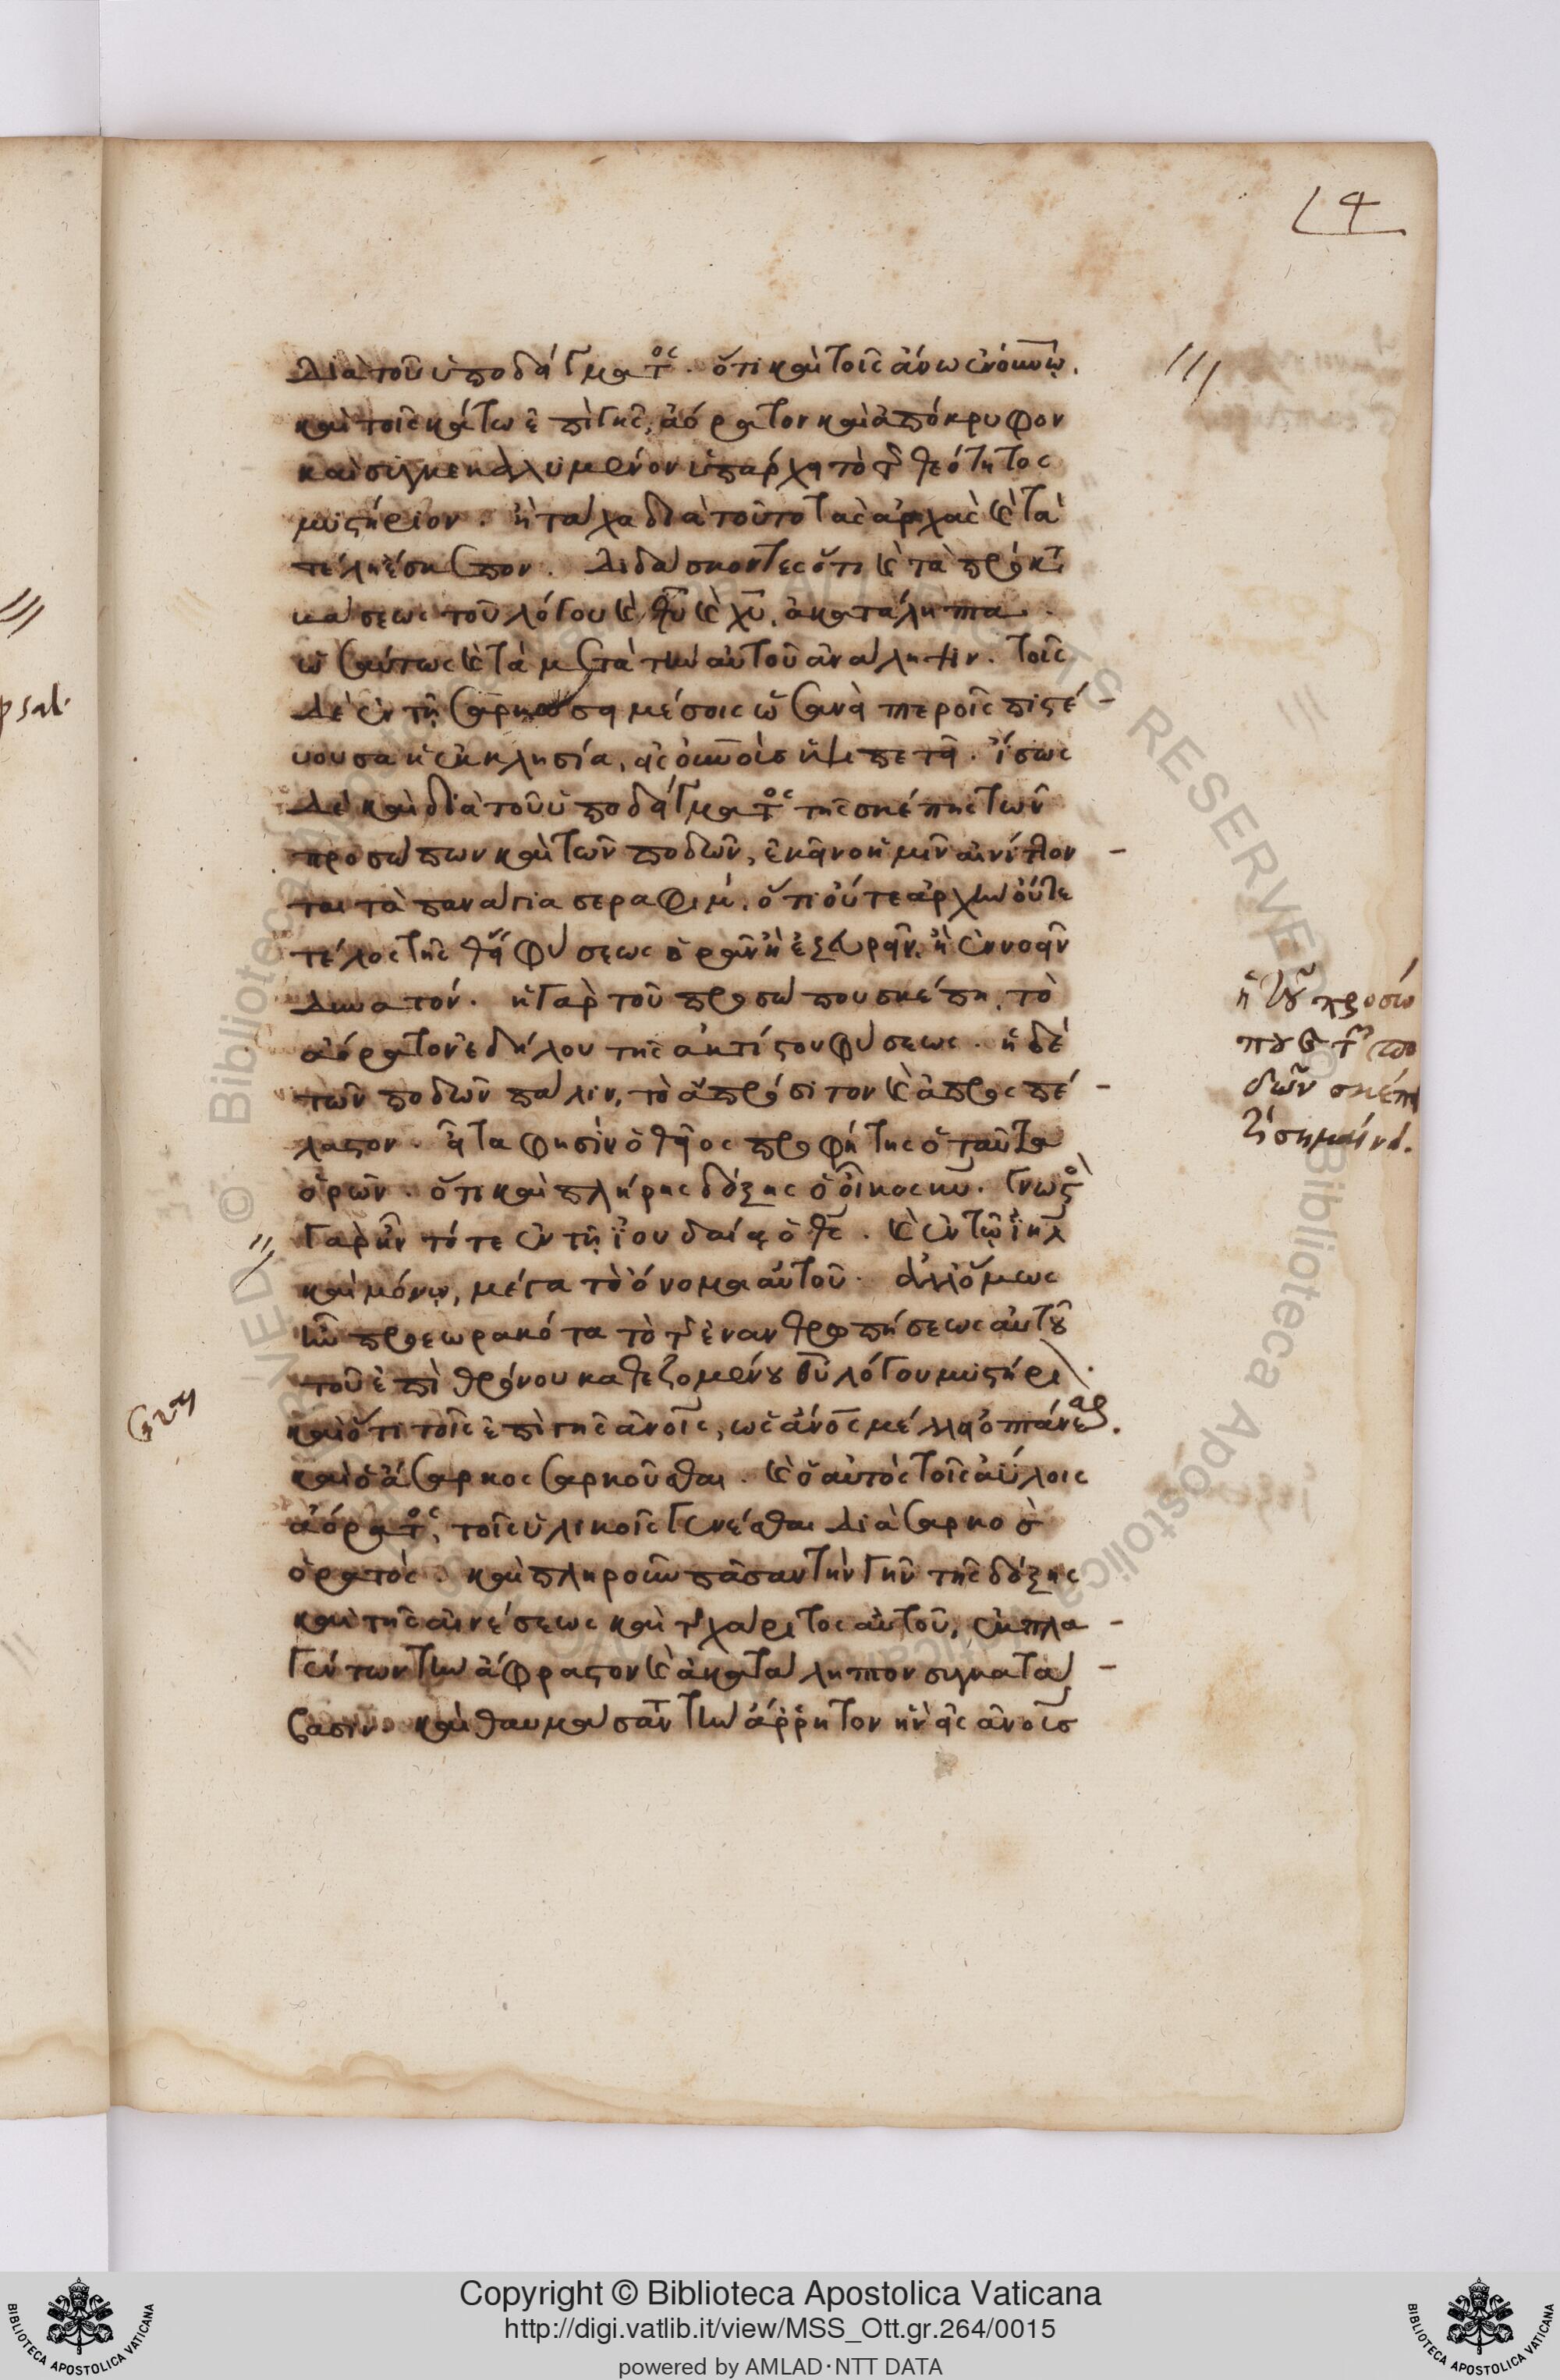 4
διὰ τοῦ ὑποδείγματος. ὅτι καὶ τοῖς ἄνω ἐν οὐνῶ.
καὶ τοῖς κάτω ἐπὶ γῆς, ἀόρατον καὶ ἀπόκρυφον
καὶ συγκεκαλυμμένον ὑπάρχει τὸ τῆς θεότητος
μυστήριον. ἢ τάχα διὰ τοῦτο τὰς ἀρχὰς καὶ τὰ
τέλη ἔσκεπον. διδάσκοντες ὅτι καὶ τὰ πρὸ
σεως τοῦ λόγου καὶ θυ καὶ χυ, ἀκατάληπτα.
ὡσαύτως καὶ τὰ μετὰ τὴν αὐτοῦ ἀνάληψιν. τοῖς
δὲ ἐν τῇ μέσοις ὡσανεὶ πτεροῖς πιστέ-
υουσα ἡ ἐκκλησία, εἰς οὐνοὺς ἵπταται. ἴσως
δὲ καὶ διὰ τοῦ ὑποδείγματος τῆς σκέπης τῶν
προσώπων καὶ τῶν ποδῶν, ἐκεῖνο ἡμῖν αἰνίττον-
ται τὰ πανάγια σεραφίμ. ὅτι οὔτε ἀρχὴν οὔτε
τέλος τῆς θείας φύσεως ὁρᾶν ἢ ἐξευρεῖν, ἢ ἐννοεῖν
δυνατόν. ἡ γὰρ τοῦ προσώπου σκέπη, τὸ
ἀόρατον ἐδήλου τῆς ἀκτίστου φύσεως. ἡ δὲ
τῶν ποδῶν πάλιν, τὸ ἀπρόσιτον καὶ ἀπροσπέ-
λαστον. εἶτα φησὶν ὁ θεῖος προφήτης ὁ ταῦτα
ὁρῶν. ὅτι καὶ πλήρης δόξης ὁ οἶκος κυ. γνωστὸς
γὰρ ἦν τότε ἐν τῇ ἰουδαίᾳ ὁ θς. καὶ ἐν τῷ ιηλ
καὶ μόνῳ, μέγα τὸ ὄνομα αὐτοῦ. ἀλλ' ὅμως
προεωρακότα τὸ τῆς ἐνανθρωπήσεως αὐτοῦ
τοῦ ἐπὶ θρόνου καθεζομένου θυ λόγου μυστήριον.
καὶ ὅτι τοῖς ἐπὶ γῆς ἀνοις, ὡς ἄνος μέλλει ὀπτάνεσθαι.
καὶ ὁ ἄσαρκος σαρκοῦσθαι. καὶ ὁ αὐτὸς τοῖς ἀΰλοις
ἀόρατος, τοῖς ὑλικοῖς γενέσθαι διὰ σαρκὸς
ὁρατός. καὶ πληροῦν πᾶσαν τὴν γῆν τῆς δόξης
καὶ τῆς αἰνέσεως καὶ τῆς χάριτος αὐτοῦ, ἐκπλα-
γέντων τὴν ἄφραστον καὶ ἀκατάληπτον συγκατά-
βασιν. καὶ θαυμάσαντ τὴν ἄρρητον ἣν εἰς ἀνοις
ἡ τοῦ προσώ
που καὶ τῶν πο
δῶν σκέπη
τί σημαίνει.
psal.